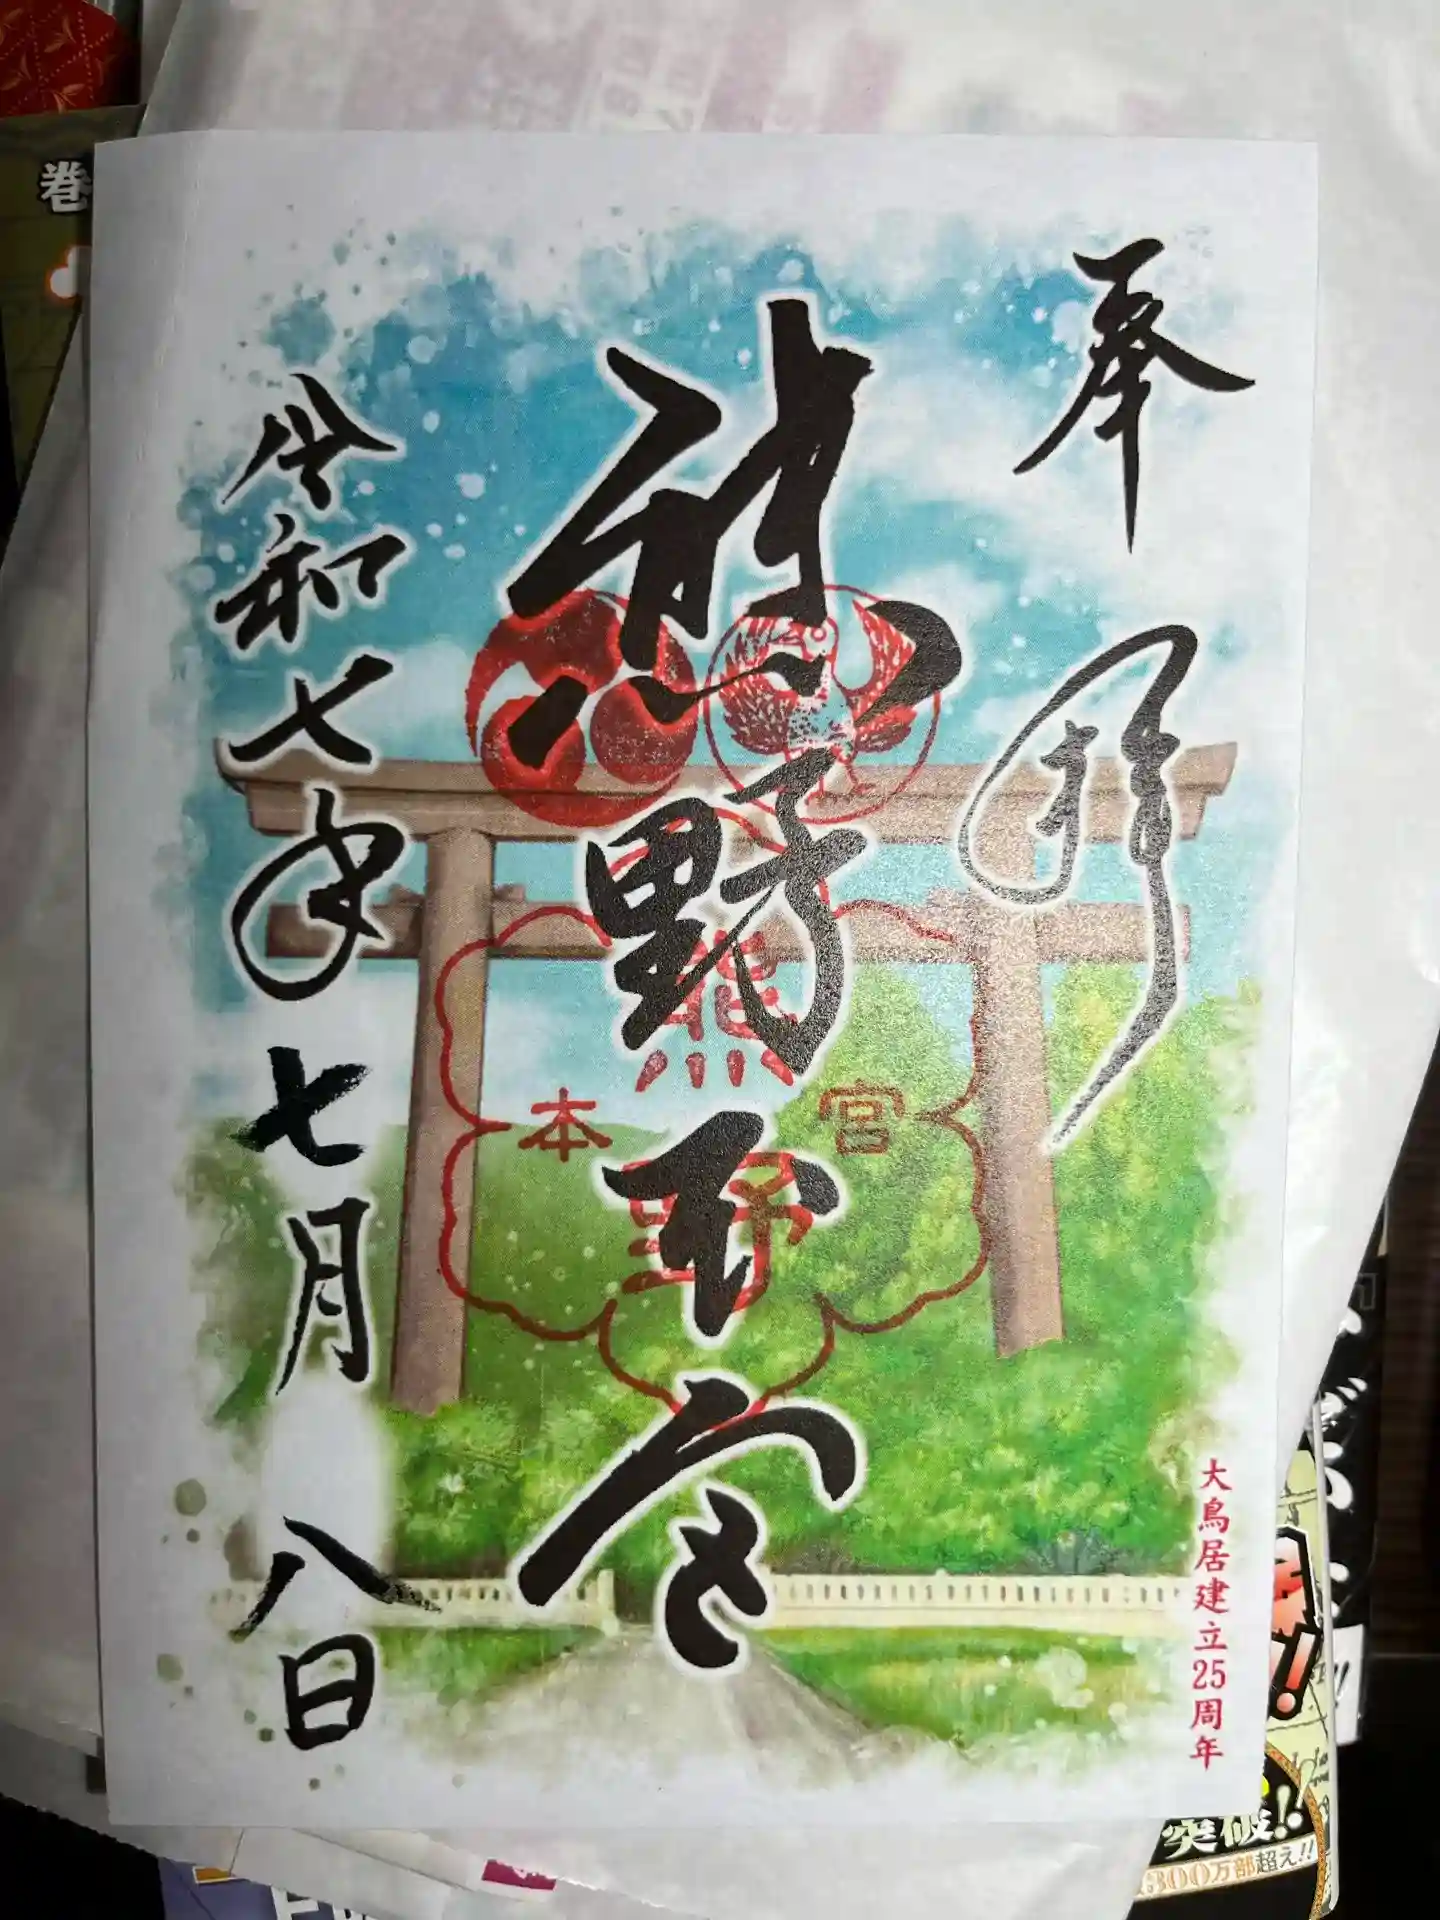 奉拝
熊野本宮
令和七年七月八日
熊野
本宮
大鳥居建立25周年
巻
突破!!
300万部超え!!